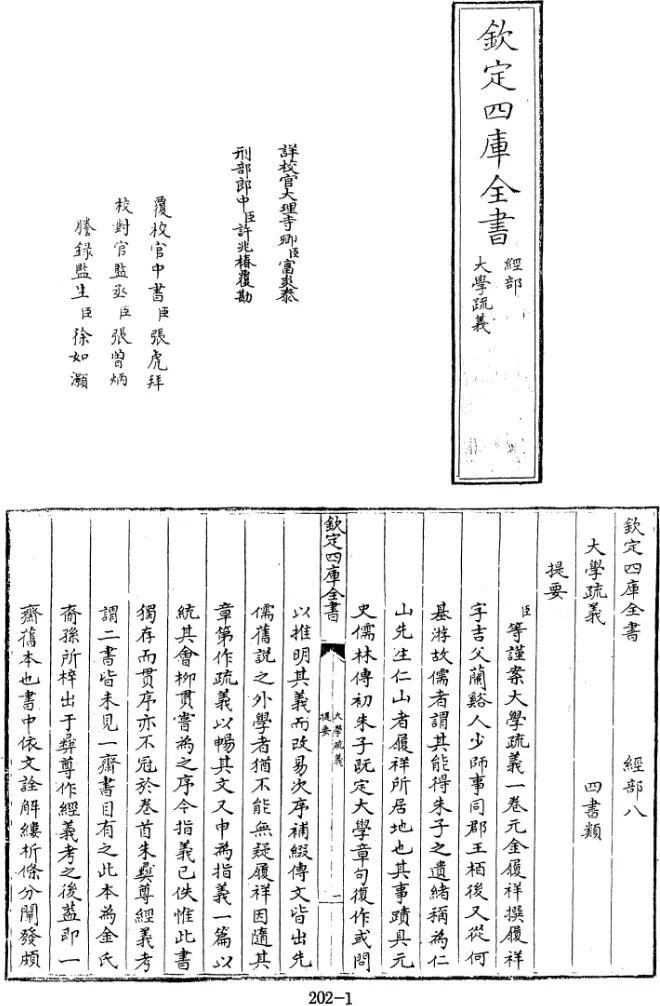 欽定四庫全書
經部
大學疏義
詳校官大理寺卿臣富炎泰
刑部郎中臣許兆椿覆勘
覆校官中書臣張虎拜
校對官監丞臣張曾炳
謄錄監生臣徐如灝
欽定四庫全書 經部八
大學疏義 四書類
提要
臣等謹案大學疏義一卷元金履祥撰履祥
字吉父蘭谿人少師事同郡王栢後又從何
基游故儒者謂其能得朱子之遺緒稱為仁
山先生仁山者履祥所居地也其事蹟具元
史儒林傳初朱子既定大學章句復作或問
欽定四庫全書
大學疏義
提要
一
以推明其義而改易次序補綴傳文皆出先
儒舊説之外學者猶不能無疑履祥因隨其
章第作疏義以暢其文又申為指義一篇以
統其會柳貫嘗為之序今指義已佚惟此書
獨存而貫序亦不冠於卷首朱彝尊經義考
謂二書皆未見一齋書目有之此本為金氏
裔孫所梓出于彝尊作經義考之後蓋即一
齋舊本也書中依文詮解縷析條分闡發頗
202-1